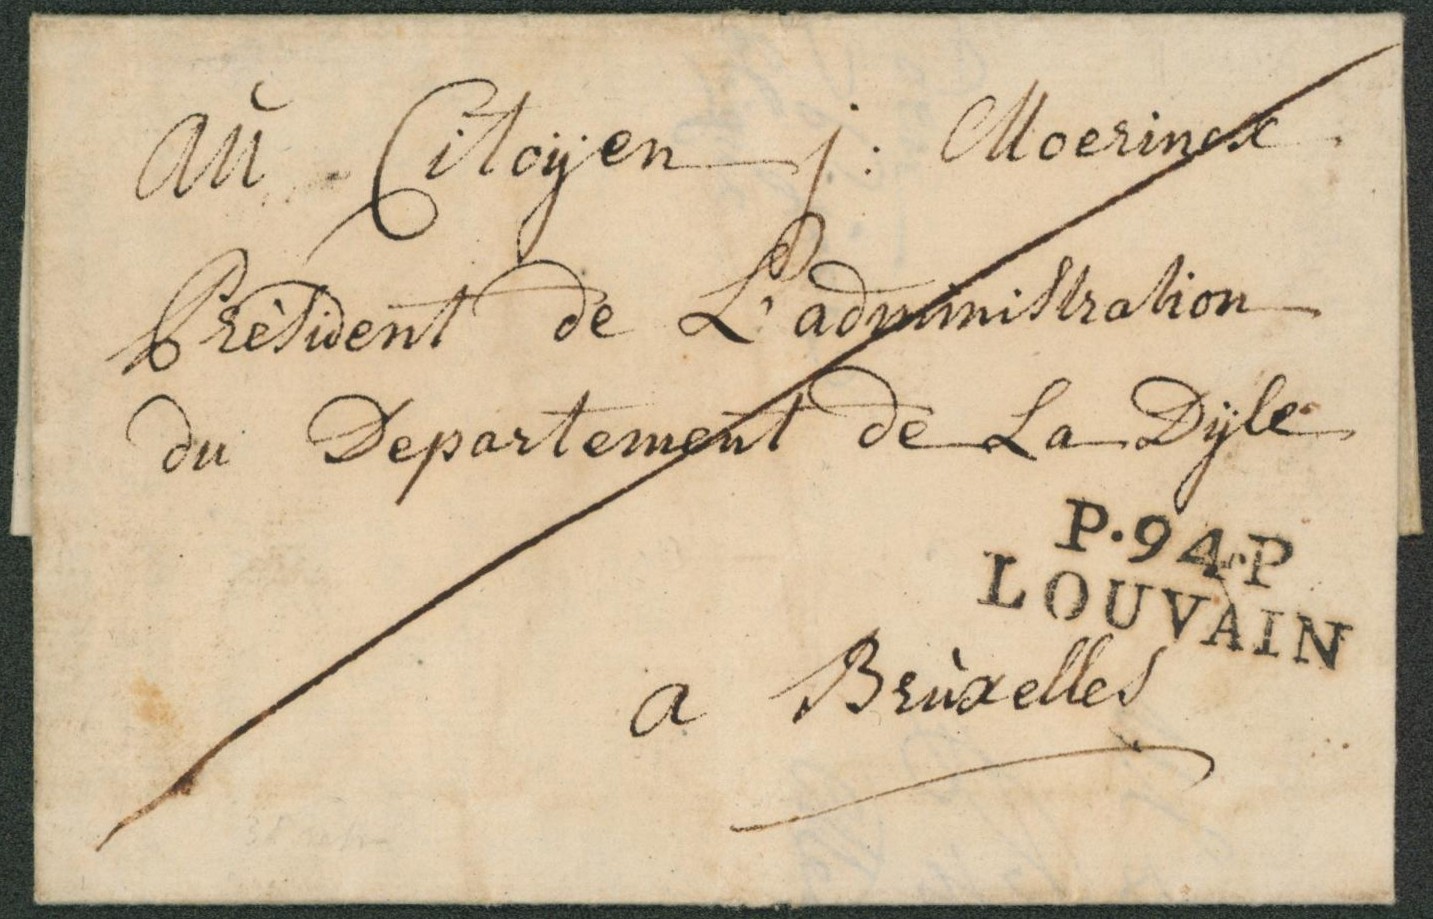 au Citoÿen j: Moerincx
Président de L'administration
du Departement de La Dÿle
P.94.P
LOUVAIN
a Brùxelles